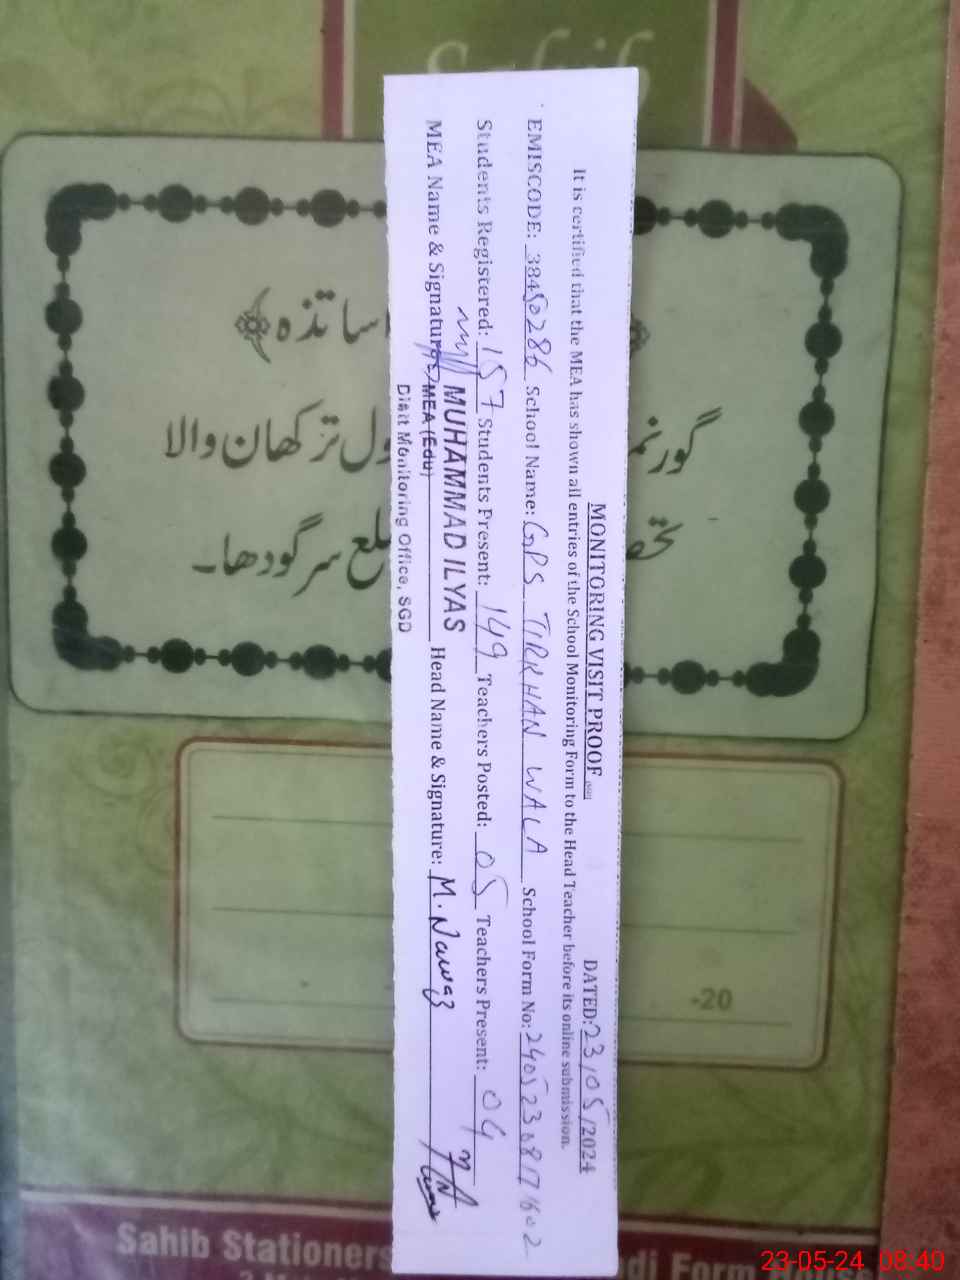 MONITORING VISIT PROOF
DATED: 23/05/2024
It is certified that the MEA has shown all entries of the School Monitoring Form to the Head Teacher before its online submission.
EMISCODE: 38450286 School Name: GPS TIRKHAN WALA School Form No: 2405230817602
Students Registered: 157 Students Present: 149 Teachers Posted: 05 Teachers Present: 04
MEA Name & Signature: MUHAMMAD ILYAS Head Name & Signature: M. Nawaz
MEA (Edu)
Distt Monitoring Office, SGD
ساتذہ
ول ترکھان والا
لع سرگودھا۔
-20
Sahib Stationers
Form
23-05-24 08:40